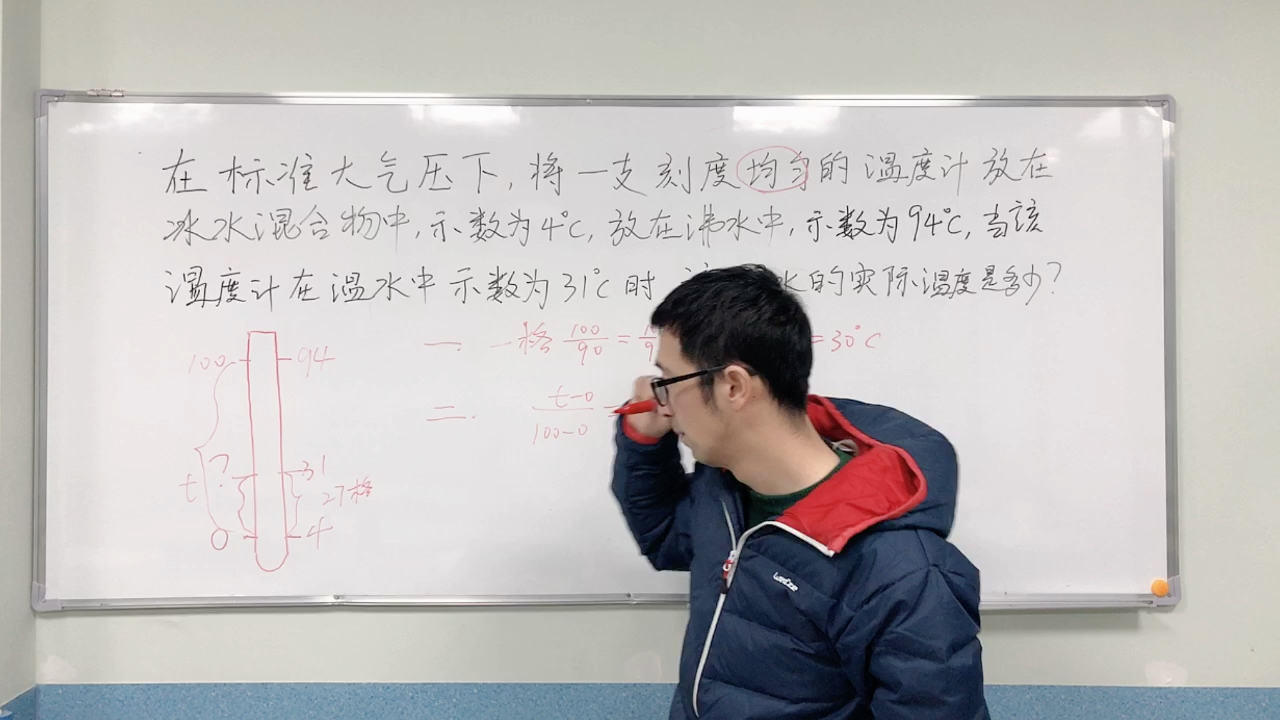 在标准大气压下,将一支刻度均匀的温度计放在
冰水混合物中,示数为4℃,放在沸水中,示数为94℃,当该
温度计在温水中示数为31℃时 水的实际温度是多少?
100 94
? 31
t 27格
0 4
一. 一格 100/90 = = 30°C
二. t-0/100-0 =